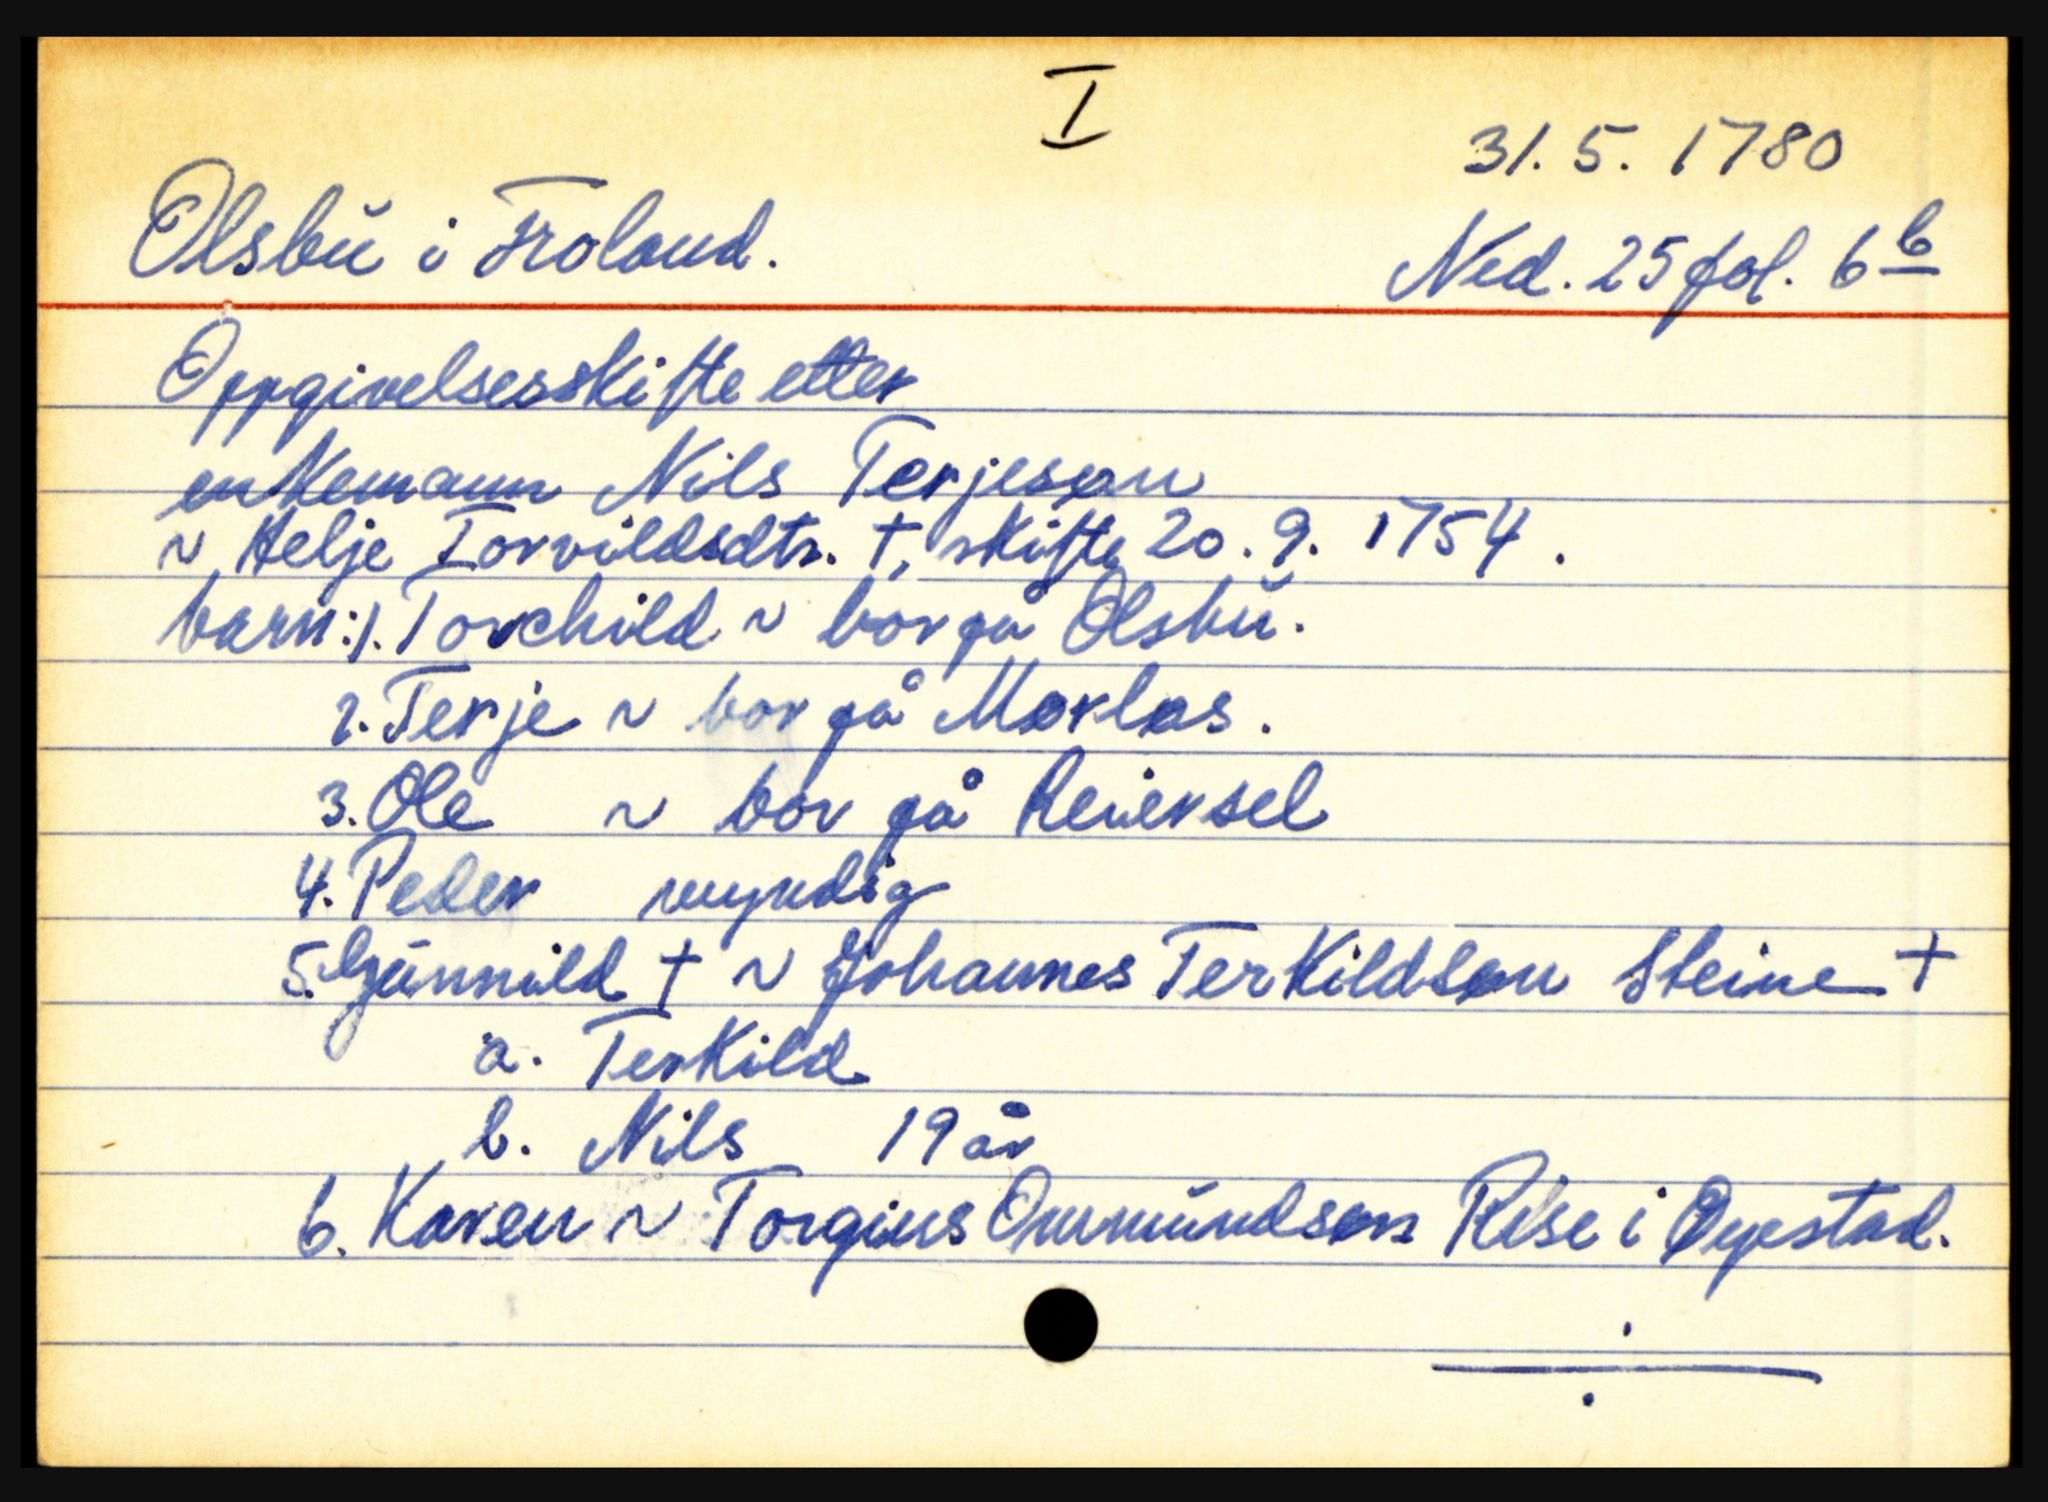 I
31.5.1780
Olsbŭ i Froland.
Ned. 25 fol. 6 b
Oppgivelsesskifte etter
enkemann Nils Terjeson
~ Helje Torvildsdtr. †, skifte 20.9.1754.
barn: 1. Torchild ~ bor på Olsbŭ.
2. Terje ~ bor på Morlos.
3. Ole ~ bor på Reiersel
4. Peder myndig
5. Gŭnnild † ~ Johannes Terkildson Steine †
a. Terkild
b. Nils 19 år
6. Karen ~ Torgius Ommŭndson Rise i Øyestad.